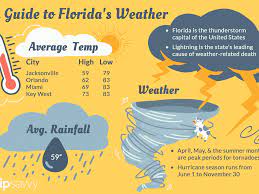 Guide to Florida's Weather
Average Temp
City High Low
Jacksonville 59 79
Orlando 62 83
Miami 69 83
Key West 73 83
Florida is the thunderstorm
capital of the United States
Lightning is the state's leading
cause of weather-related death
Weather
Avg. Rainfall
59"
April, May, & the summer mont
are peak periods for tornadoes
Hurricane season runs from
June 1 to November 30
ipsavvy